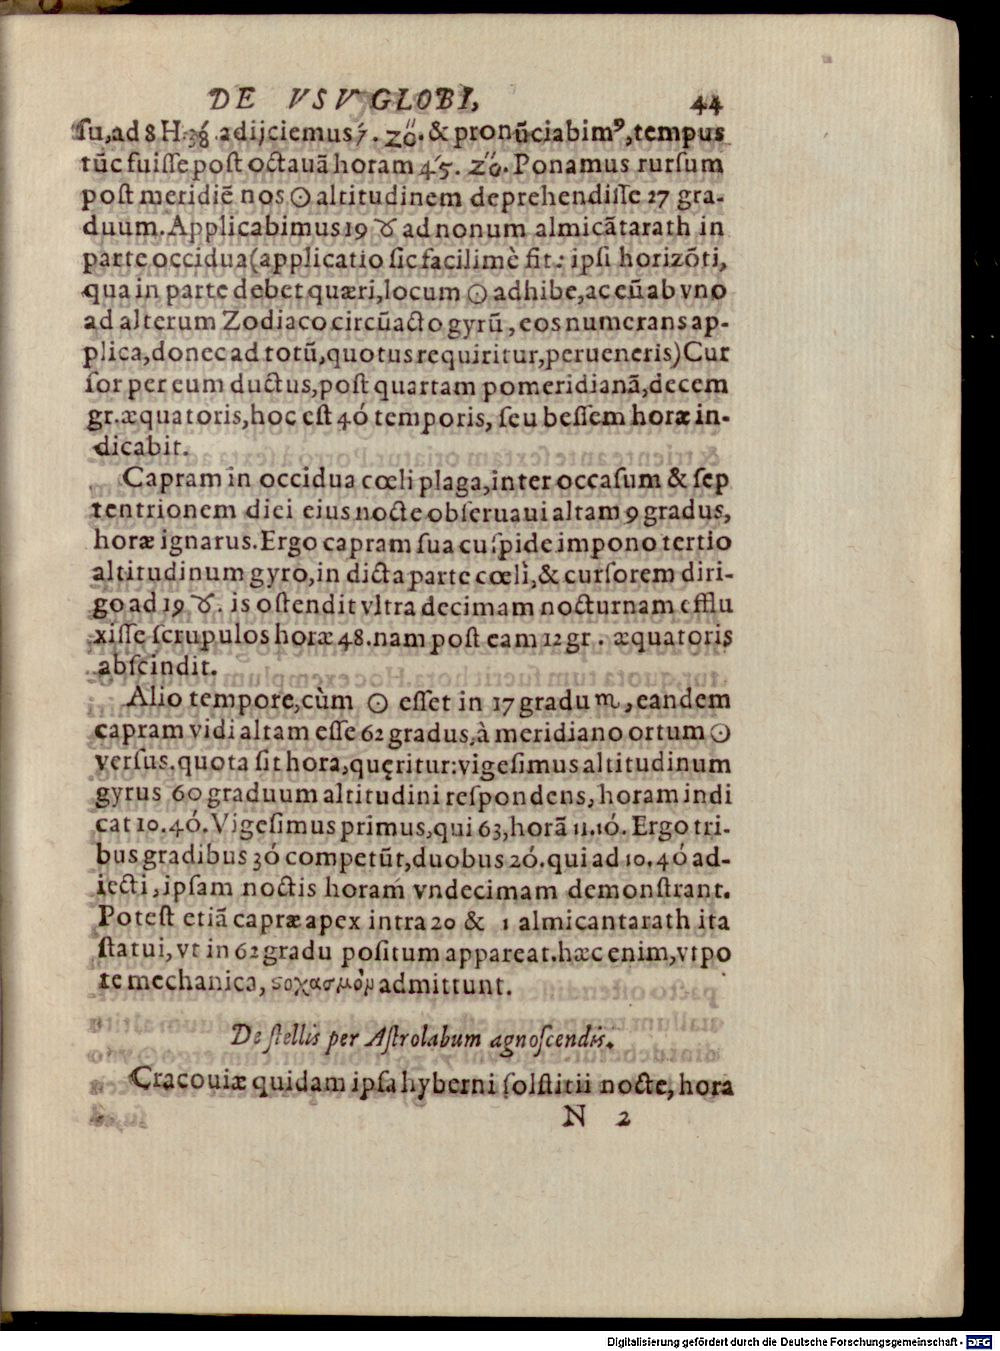 DE VSV GLOBI, 44
ſu,ad 8 H. 38́ adijciemus 7́. 20̋. & pronũciabimꝰ, tempus
tũc fuiſſe poſt octauã horam 45́. 20̋. Ponamus rurſum
poſt meridiẽ nos ☉ altitudinem deprehendiſſe 27 gra-
duum. Applicabimus 19 ♉ ad nonum almicãtarath in
parte occidua (applicatio ſic facilimè fit: ipſi horizõti,
qua in parte debet quæri, locum ☉ adhibe, ac eũ ab vno
ad alterum Zodiaco circũacto gyrũ, eos numerans ap-
plica, donec ad totũ, quotus requiritur, perueneris) Cur
ſor per eum ductus, poſt quartam pomeridianã, decem
gr. æquatoris, hoc eſt 40́ temporis, ſeu beſſem horæ in-
dicabit.
Capram in occidua cœli plaga, inter occaſum & ſep
tentrionem diei eius nocte obſeruaui altam 9 gradus,
horæ ignarus. Ergo capram ſua cuſpide impono tertio
altitudinum gyro, in dicta parte cœli, & curſorem diri-
go ad 19 ♉. is oſtendit vltra decimam nocturnam efflu
xiſſe ſcrupulos horæ 48. nam poſt eam 12 gr. æquatoris
abſcindit.
Alio tempore, cùm ☉ eſſet in 17 gradu ♏, eandem
capram vidi altam eſſe 62 gradus, à meridiano ortum ☉
verſus. quota ſit hora, quęritur: vigeſimus altitudinum
gyrus 60 graduum altitudini reſpondens, horam indi
cat 10. 40́. Vigeſimus primus, qui 63, horã 11. 10́. Ergo tri-
bus gradibus 30́ competũt, duobus 20́. qui ad 10. 40́ ad-
iecti, ipſam noctis horam vndecimam demonſtrant.
Poteſt etiã capræ apex intra 20 & 1 almicantarath ita
ſtatui, vt in 62 gradu poſitum appareat. hæc enim, vtpo
te mechanica, ϛοχασμὸν admittunt.
De ſtellis per Aſtrolabum agnoſcendis.
Cracouiæ quidam ipſa hyberni ſolſtitii nocte, hora
N 2
Digitalisierung gefördert durch die Deutsche Forschungsgemeinschaft - DFG